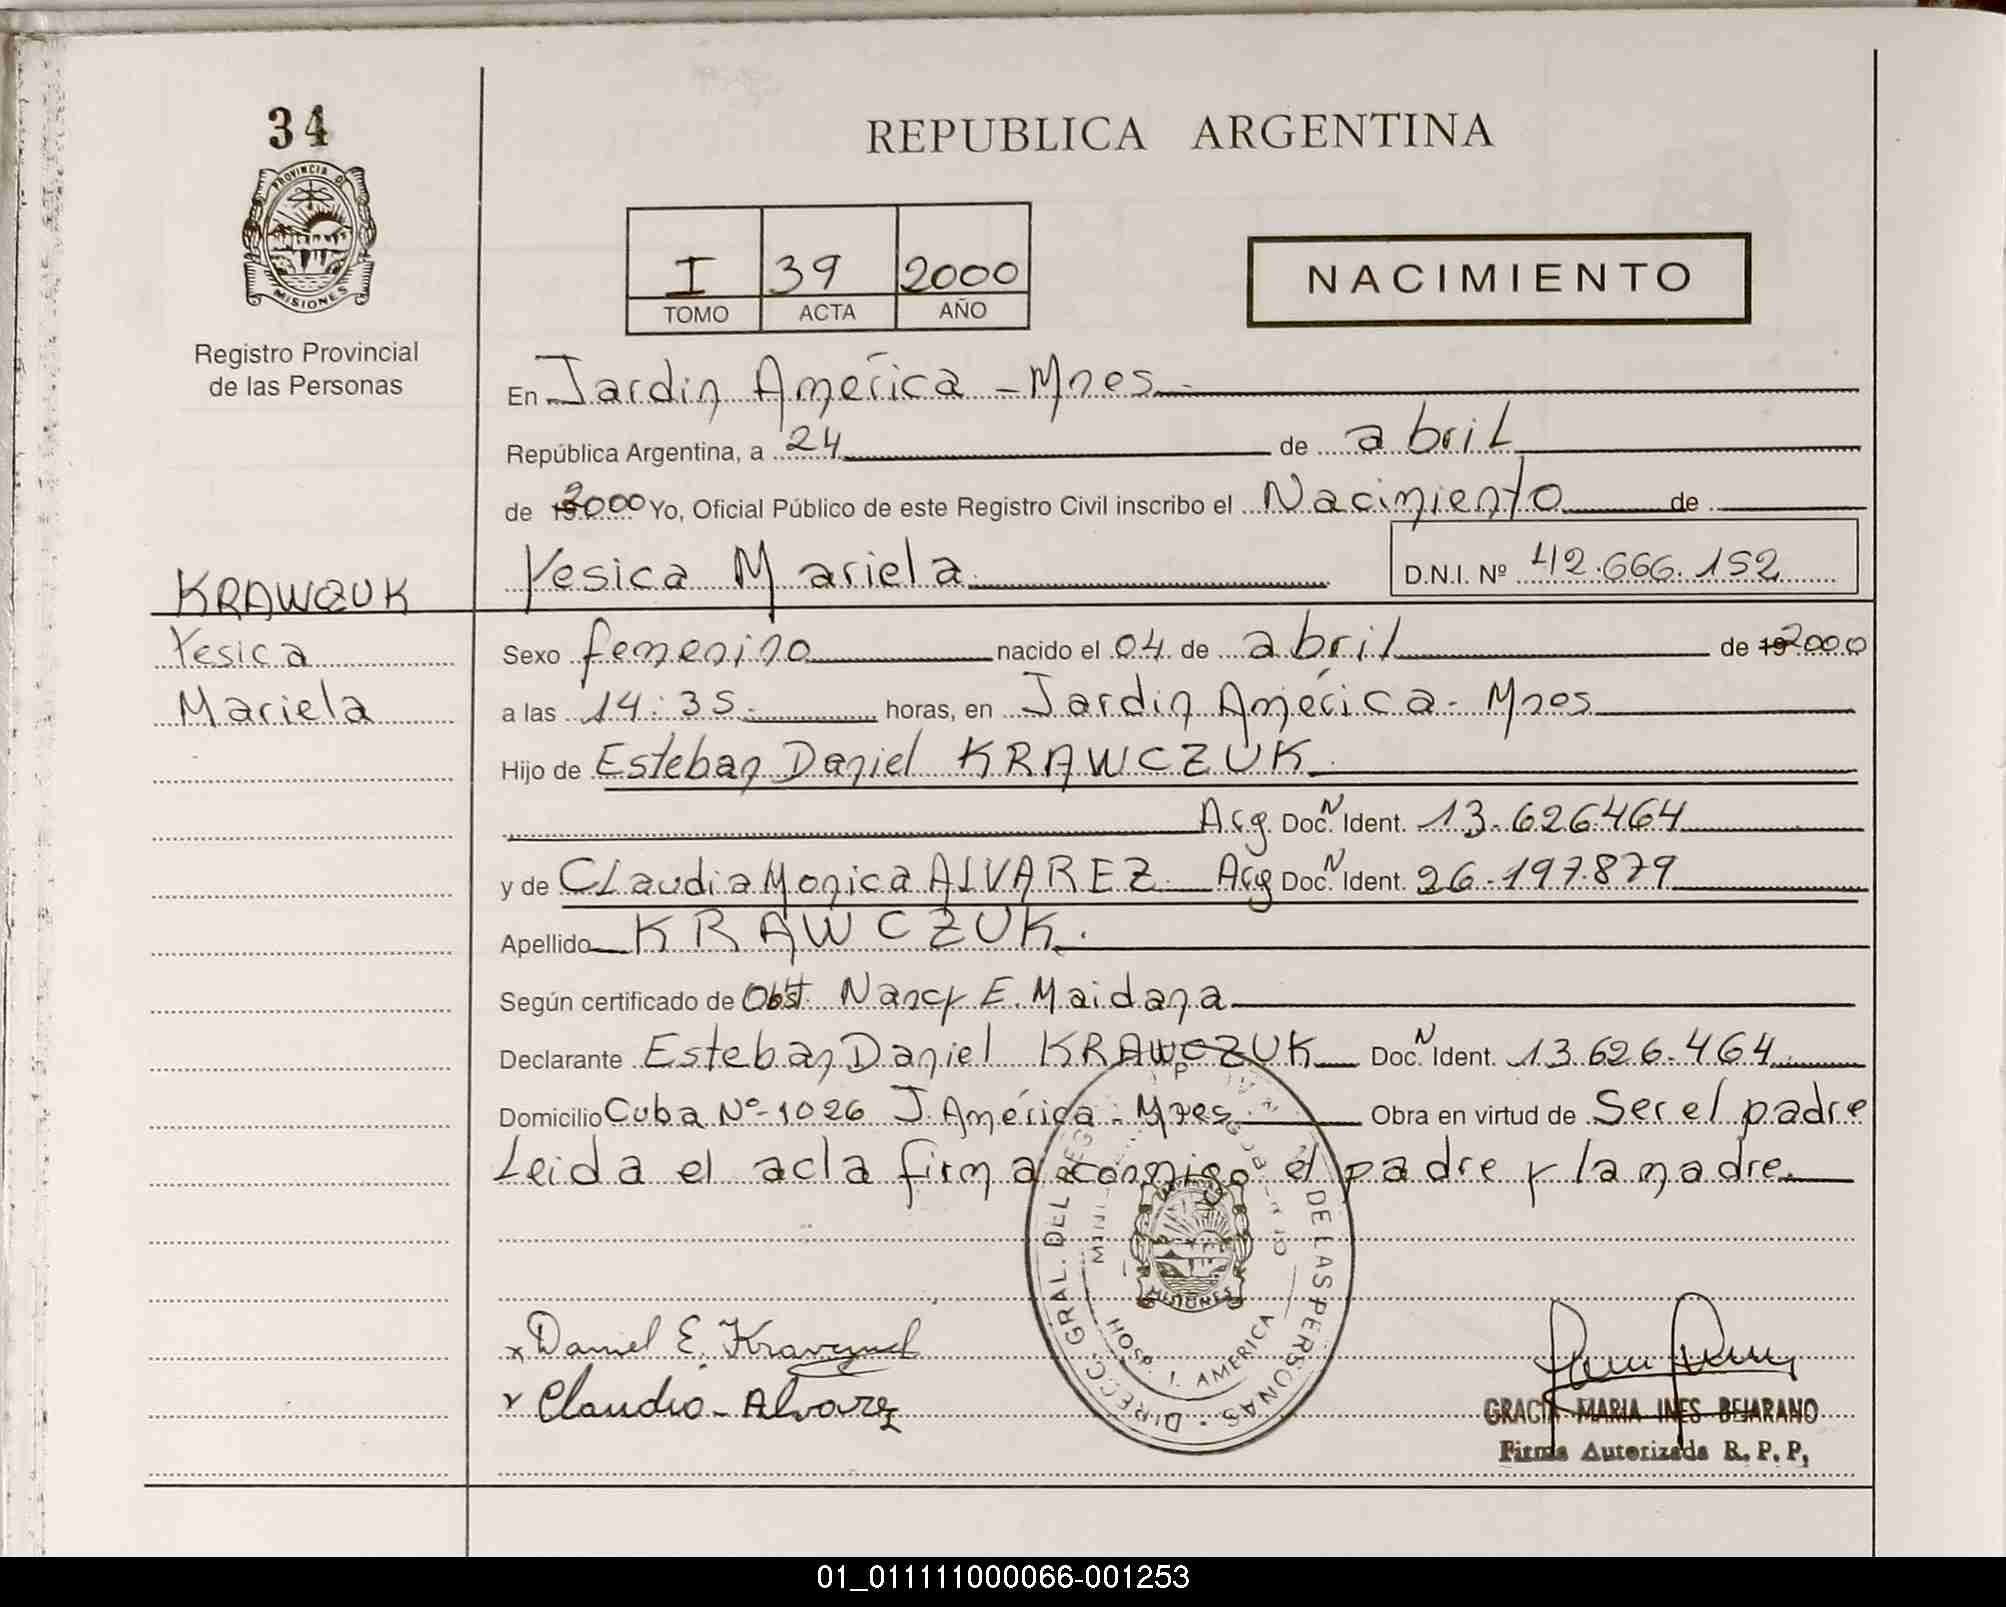 34
PROVINCIA DE
MISIONES
Registro Provincial
de las Personas
REPUBLICA ARGENTINA
I 39 2000
TOMO ACTA AÑO
NACIMIENTO
En Jardin América - Mnes.
República Argentina, a 24 de abril
de 2000 Yo, Oficial Público de este Registro Civil inscribo el Nacimiento de
Yesica Mariela D.N.I. Nº 42.666.152
KRAWCZUK
Yesica
Mariela
Sexo femenino nacido el 04 de abril de 19 2000
a las 14:35. horas, en Jardin América - Mnes
Hijo de Esteban Daniel KRAWCZUK.
Arg. Doc. N Ident. 13.626464
y de CLaudia Monica ALVAREZ. Arg Doc. N Ident. 26.197.879
Apellido KRAWCZUK.
Según certificado de Obst. Nancy E. Maidana
Declarante Esteban Daniel KRAWCZUK Doc. N Ident. 13.626.464
Domicilio Cuba Nº-1026 J. América - Mnes. Obra en virtud de Ser el padre
Leida el acta firma conmigo el padre y la madre.
DIRECC. GRAL. DEL REG. DE LAS PERSONAS
HOSP. J. AMERICA
MISIONES
x Daniel E. Krawczuk
x Claudia - Alvarez
GRACIA MARIA INES BEJARANO
Firma Autorizada R. P. P,
01_011111000066-001253